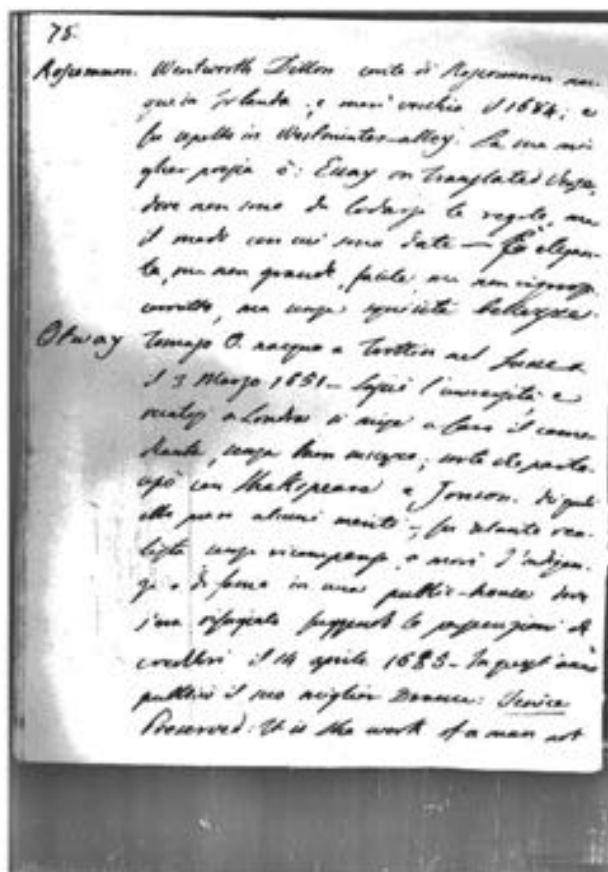 75.
Roscommon. Wentworth Dillon conte di Roscommon nac-
que in Irlanda, e morì vecchio il 1684; e
fu sepolto in Westminter-abbey. La sua mi
glior poesia è: Essay on translated Verse,
dove non sono da lodarsi le regole, ma
il modo con cui sono date — Fu elegan-
te, ma non grande, facile, ma non vigoroso,
corretto, ma senza squisite bellezze.
Otway Tomaso O. nacque a Trottin nel Sussex
il 3 Marzo 1651 — Lasciò l'università, e
recatosi a Londra si mise a fare il comme
diante, senza buon successo; sorte che parte-
cipò con Shakspeare e Jonson.
alcuni meriti; fu
senza ricompensa, e morì d'indigen-
za e di fame in una public-house dove
s'era rifugiato fuggendo le persecuzioni di
creditori il 14 aprile 1685 —
pubblicò il suo miglior Dramma: Venice
Preserved: It is the work of a man not